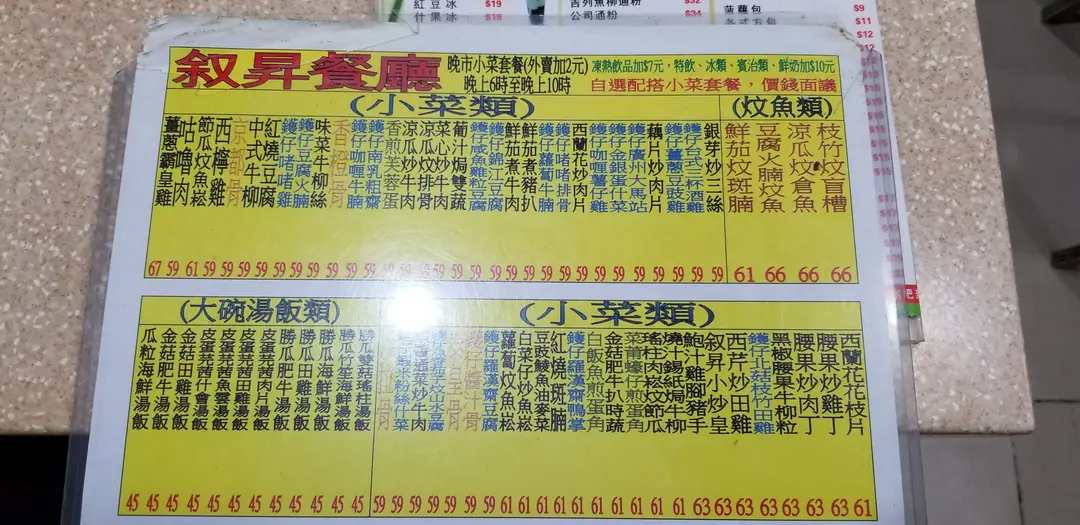 紅豆冰 $19
什果冰 $19
吉列魚柳通粉 $32
公司通粉 $34
菠蘿包 $9
各式方包 $11
$12
$12
叙昇餐廳
晚市小菜套餐(外賣加2元)
晚上6時至晚上10時
凍熱飲品加$7元，特飲、冰類、賓治類、鮮奶加$10元
自選配搭小菜套餐，價錢面議
(小菜類)
薑蔥霸皇雞 67
咕嚕肉 59
節瓜炆魚崧 61
西檸雞 59
京都骨 59
中式牛柳 59
紅燒豆腐 59
鑊仔啫啫雞 59
鑊仔豆腐火腩 59
味菜牛柳絲 59
香橙骨 59
鑊仔咖喱牛腩 59
鑊仔南乳粗齋 59
香煎芙蓉蛋 59
涼瓜炒牛肉 59
涼瓜炆排骨 59
菜心炒牛肉 59
葡汁焗雙蔬 59
鑊仔咸魚雞粒豆腐 59
鑊仔錦江豆腐 59
鮮茄煮牛肉 59
鮮茄煮豬扒 59
鑊仔蘿蔔牛腩 59
鑊仔啫啫排骨 59
西蘭花炒肉片 59
鑊仔咖喱薯仔雞 59
鑊仔金銀蛋什菜 59
鑊仔廣州大馬站 59
藕片炒肉片 59
鑊仔薑蔥豆豉雞 59
鑊仔台式三杯酒雞 59
銀芽炒三絲 59
(炆魚類)
鮮茄炆斑腩 61
豆腐火腩炆魚 66
涼瓜炆倉魚 66
枝竹炆盲槽 66
(大碗湯飯類)
瓜粒海鮮湯飯 45
金菇肥牛湯飯 45
金菇田雞湯飯 45
皮蛋芫茜什會湯飯 45
皮蛋芫茜魚雲湯飯 45
皮蛋芫茜田雞湯飯 45
皮蛋芫茜肉片湯飯 45
勝瓜田雞湯飯 45
勝瓜肥牛湯飯 45
勝瓜海鮮湯飯 45
勝瓜竹笙海鮮湯飯 45
勝瓜雙菇瑤柱湯飯 45
(小菜類)
59
粉絲什菜 59
菜炒牛肉 59
59
骨 59
汁骨 59
鑊仔羅漢齋豆腐 59
蘿蔔炆魚崧 61
白菜仔炒魚崧 61
豆豉鯪魚油麥菜 61
紅燒斑腩 61
鑊仔羅漢齋鴨掌 61
白飯魚煎蛋角 61
金菇肥牛扒時蔬 61
菜甫蠔仔煎蛋角 61
瑤柱肉崧炆節瓜 61
燒汁錫紙焗牛柳 61
鮑汁雞腳豬手 63
叙昇小炒皇 63
西芹炒田雞 63
鑊仔北菇枝竹田雞 63
黑椒腰果牛柳粒 63
腰果炒肉丁 63
腰果炒雞丁 63
西蘭花花枝片 61